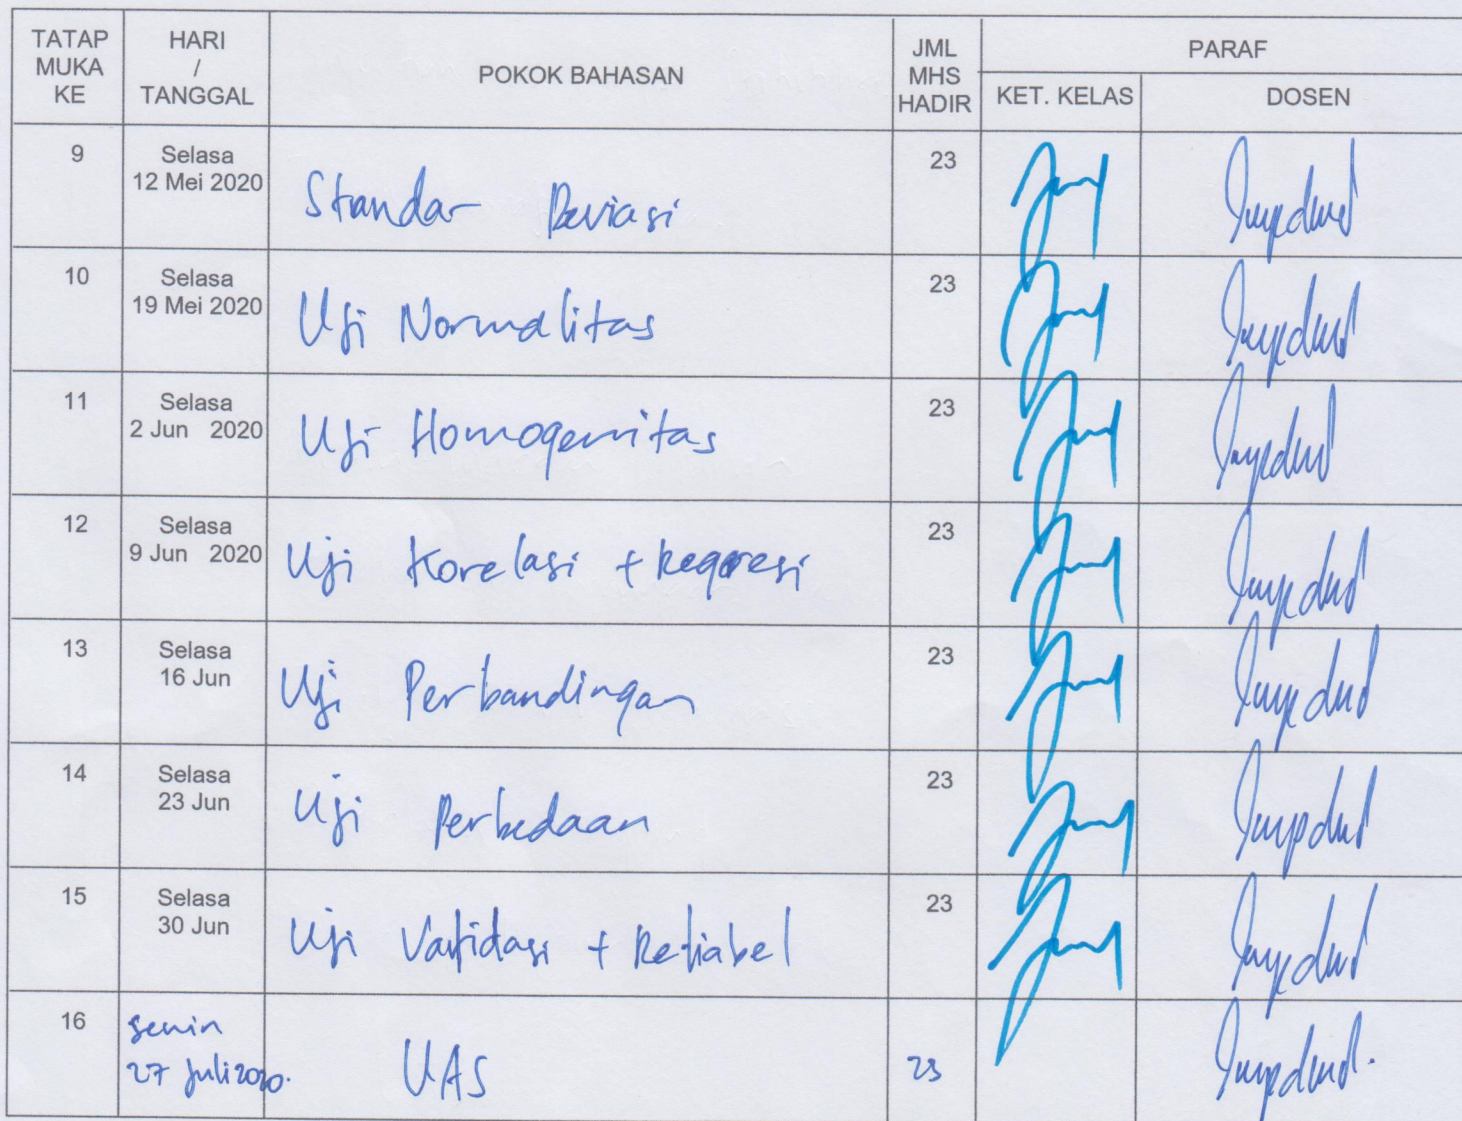 TATAP MUKA KE
HARI / TANGGAL
POKOK BAHASAN
JML MHS HADIR
PARAF
KET. KELAS
DOSEN
9 Selasa 12 Mei 2020 Standar Deviasi 23
10 Selasa 19 Mei 2020 Uji Normalitas 23
11 Selasa 2 Jun 2020 Uji Homogenitas 23
12 Selasa 9 Jun 2020 Uji Korelasi + Regresi 23
13 Selasa 16 Jun Uji Perbandingan 23
14 Selasa 23 Jun Uji Perbedaan 23
15 Selasa 30 Jun Uji Validasi + Reliabel 23
16 Senin 27 Juli 2020. UAS 23